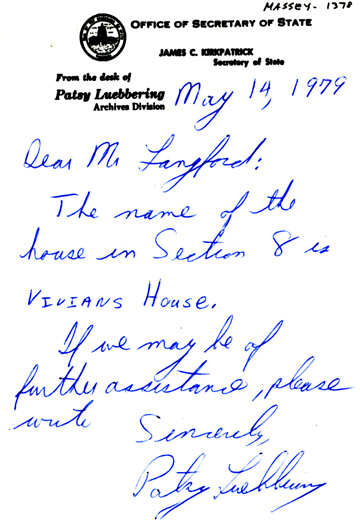 MASSEY- 1378
OFFICE OF SECRETARY OF STATE
JAMES C. KIRKPATRICK
Secretary of State
From the desk of
Patsy Luebbering
Archives Division
May 14, 1979
Dear Mr Langford:
The name of the
house in Section 8 is
VIVIANS HOUSE.
If we may be of
further assistance, please
write
Sincerely,
Patsy Luebbering